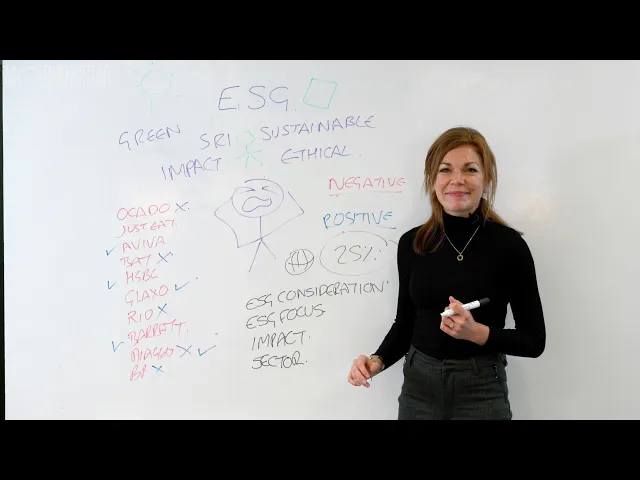 ESG
GREEN SRI SUSTAINABLE
IMPACT ETHICAL
NEGATIVE
POSITIVE
25%
OCADO X
JUST EAT.
✓ AVIVA
BAT X
✓ HSBC
GLAXO ✓
RIO X
✓ BARRATT.
DIAGEO X ✓
BP X
ESG CONSIDERATION
ESG FOCUS
IMPACT.
SECTOR.